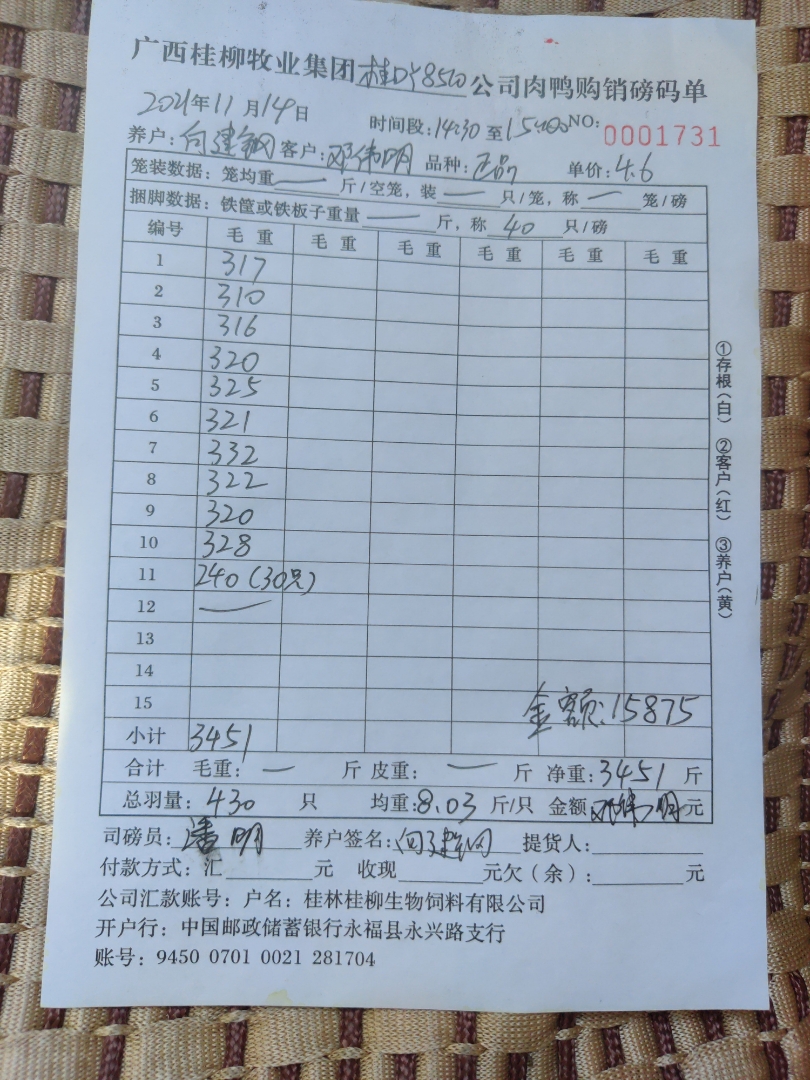 广西桂柳牧业集团桂 8500公司肉鸭购销磅码单
2021年11月14日 时间段:14:30至15:00 NO: 0001731
养户:向建钢 客户:邓伟明 品种:正品 单价:4.6
笼装数据:笼均重—斤/空笼,装—只/笼,称—笼/磅
捆脚数据:铁筐或铁板子重量—斤,称40只/磅
编号 毛重 毛重 毛重 毛重 毛重 毛重
1 317
2 310
3 316
4 320
5 325
6 321
7 332
8 322
9 320
10 328
11 240(30只)
12 —
13
14
15 金额:15875
小计 3451
合计 毛重:— 斤 皮重:— 斤 净重:3451 斤
总羽量:430 只 均重:8.03 斤/只 金额 邓伟明 元
司磅员:潘明 养户签名:向建钢 提货人:
付款方式:汇 元 收现 元欠(余): 元
公司汇款账号:户名:桂林桂柳生物饲料有限公司
开户行:中国邮政储蓄银行永福县永兴路支行
账号:9450 0701 0021 281704
①存根(白) ②客户(红) ③养户(黄)